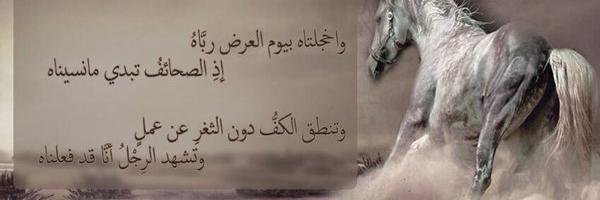 واخجلتاه بيوم العرض ربَّاهُ
إذِ الصحائفُ تبدي مانسيناه
وتنطق الكفُّ دون الثغرِ عن عملٍ
وتشهد الرِجْلُ أنَّا قد فعلناه